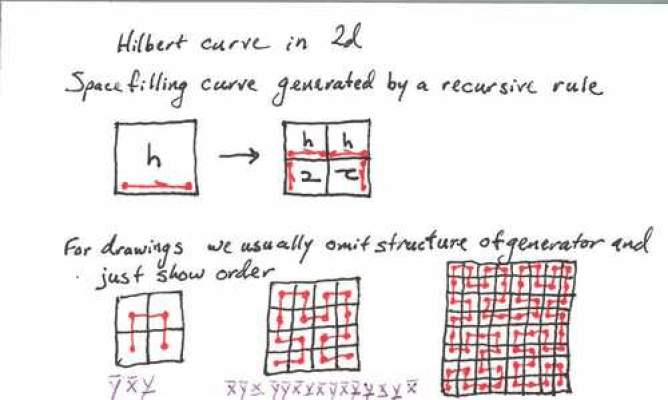 Hilbert curve in 2d
Space filling curve generated by a recursive rule
h
h h
For drawings we usually omit structure of generator and
just show order